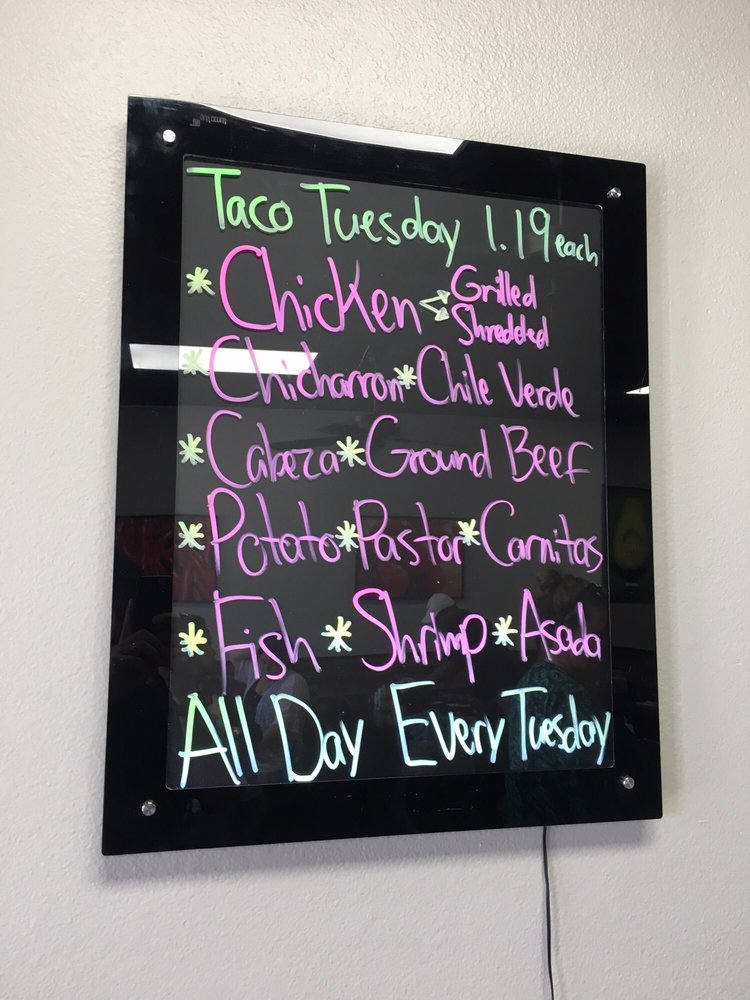 Taco Tuesday 1.19 each
* Chicken Grilled
Shredded
* Chicharron * Chile Verde
* Cabeza * Ground Beef
* Potato * Pastor * Carnitas
* Fish * Shrimp * Asada
All Day Every Tuesday